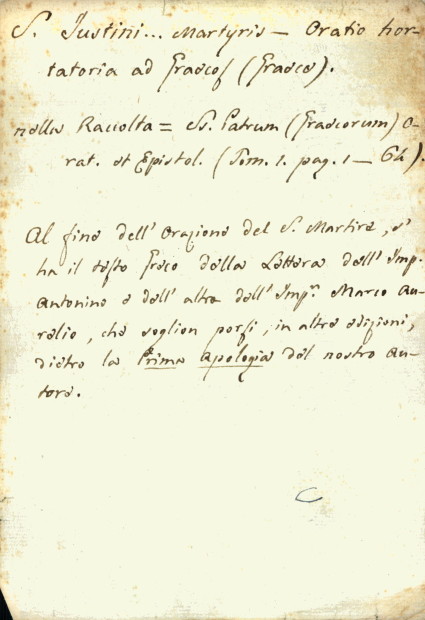 S. Justini... Martyris — Oratio hor-
tatoria ad Graecos (Graece).
nella Raccolta = SS. Patrum (Graecorum) O-
rat. et Epistol. (Tom. 1. pag. 1 — 64).
Al fine dell' Orazione del S. Martire, s'
ha il testo Greco della Lettera dell' Imp.
Antonino e dell' altra dell' Imp.r Marco Au-
relio, che soglion porsi, in altre edizioni,
dietro la Prima apologia del nostro au-
tore.
C